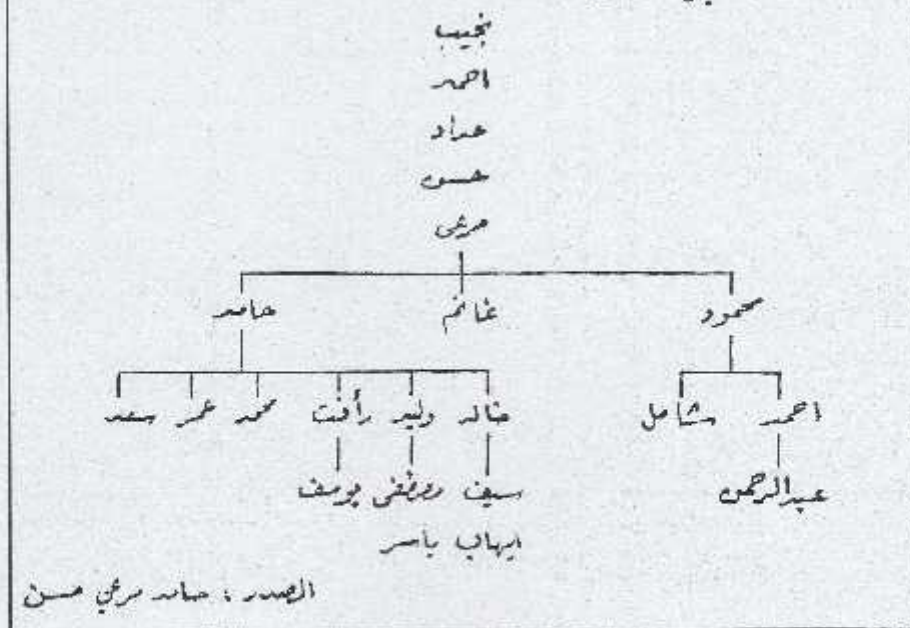 نجيب
احمد
عداد
حسن
مرعي
محمود غانم حامد
احمد شامل خالد وليد رأفت محمد عمر سعد
عبدالرحمن سيف مصطفى يوسف
ايهاب ياسر
المصدر : حامد مرعي حسن